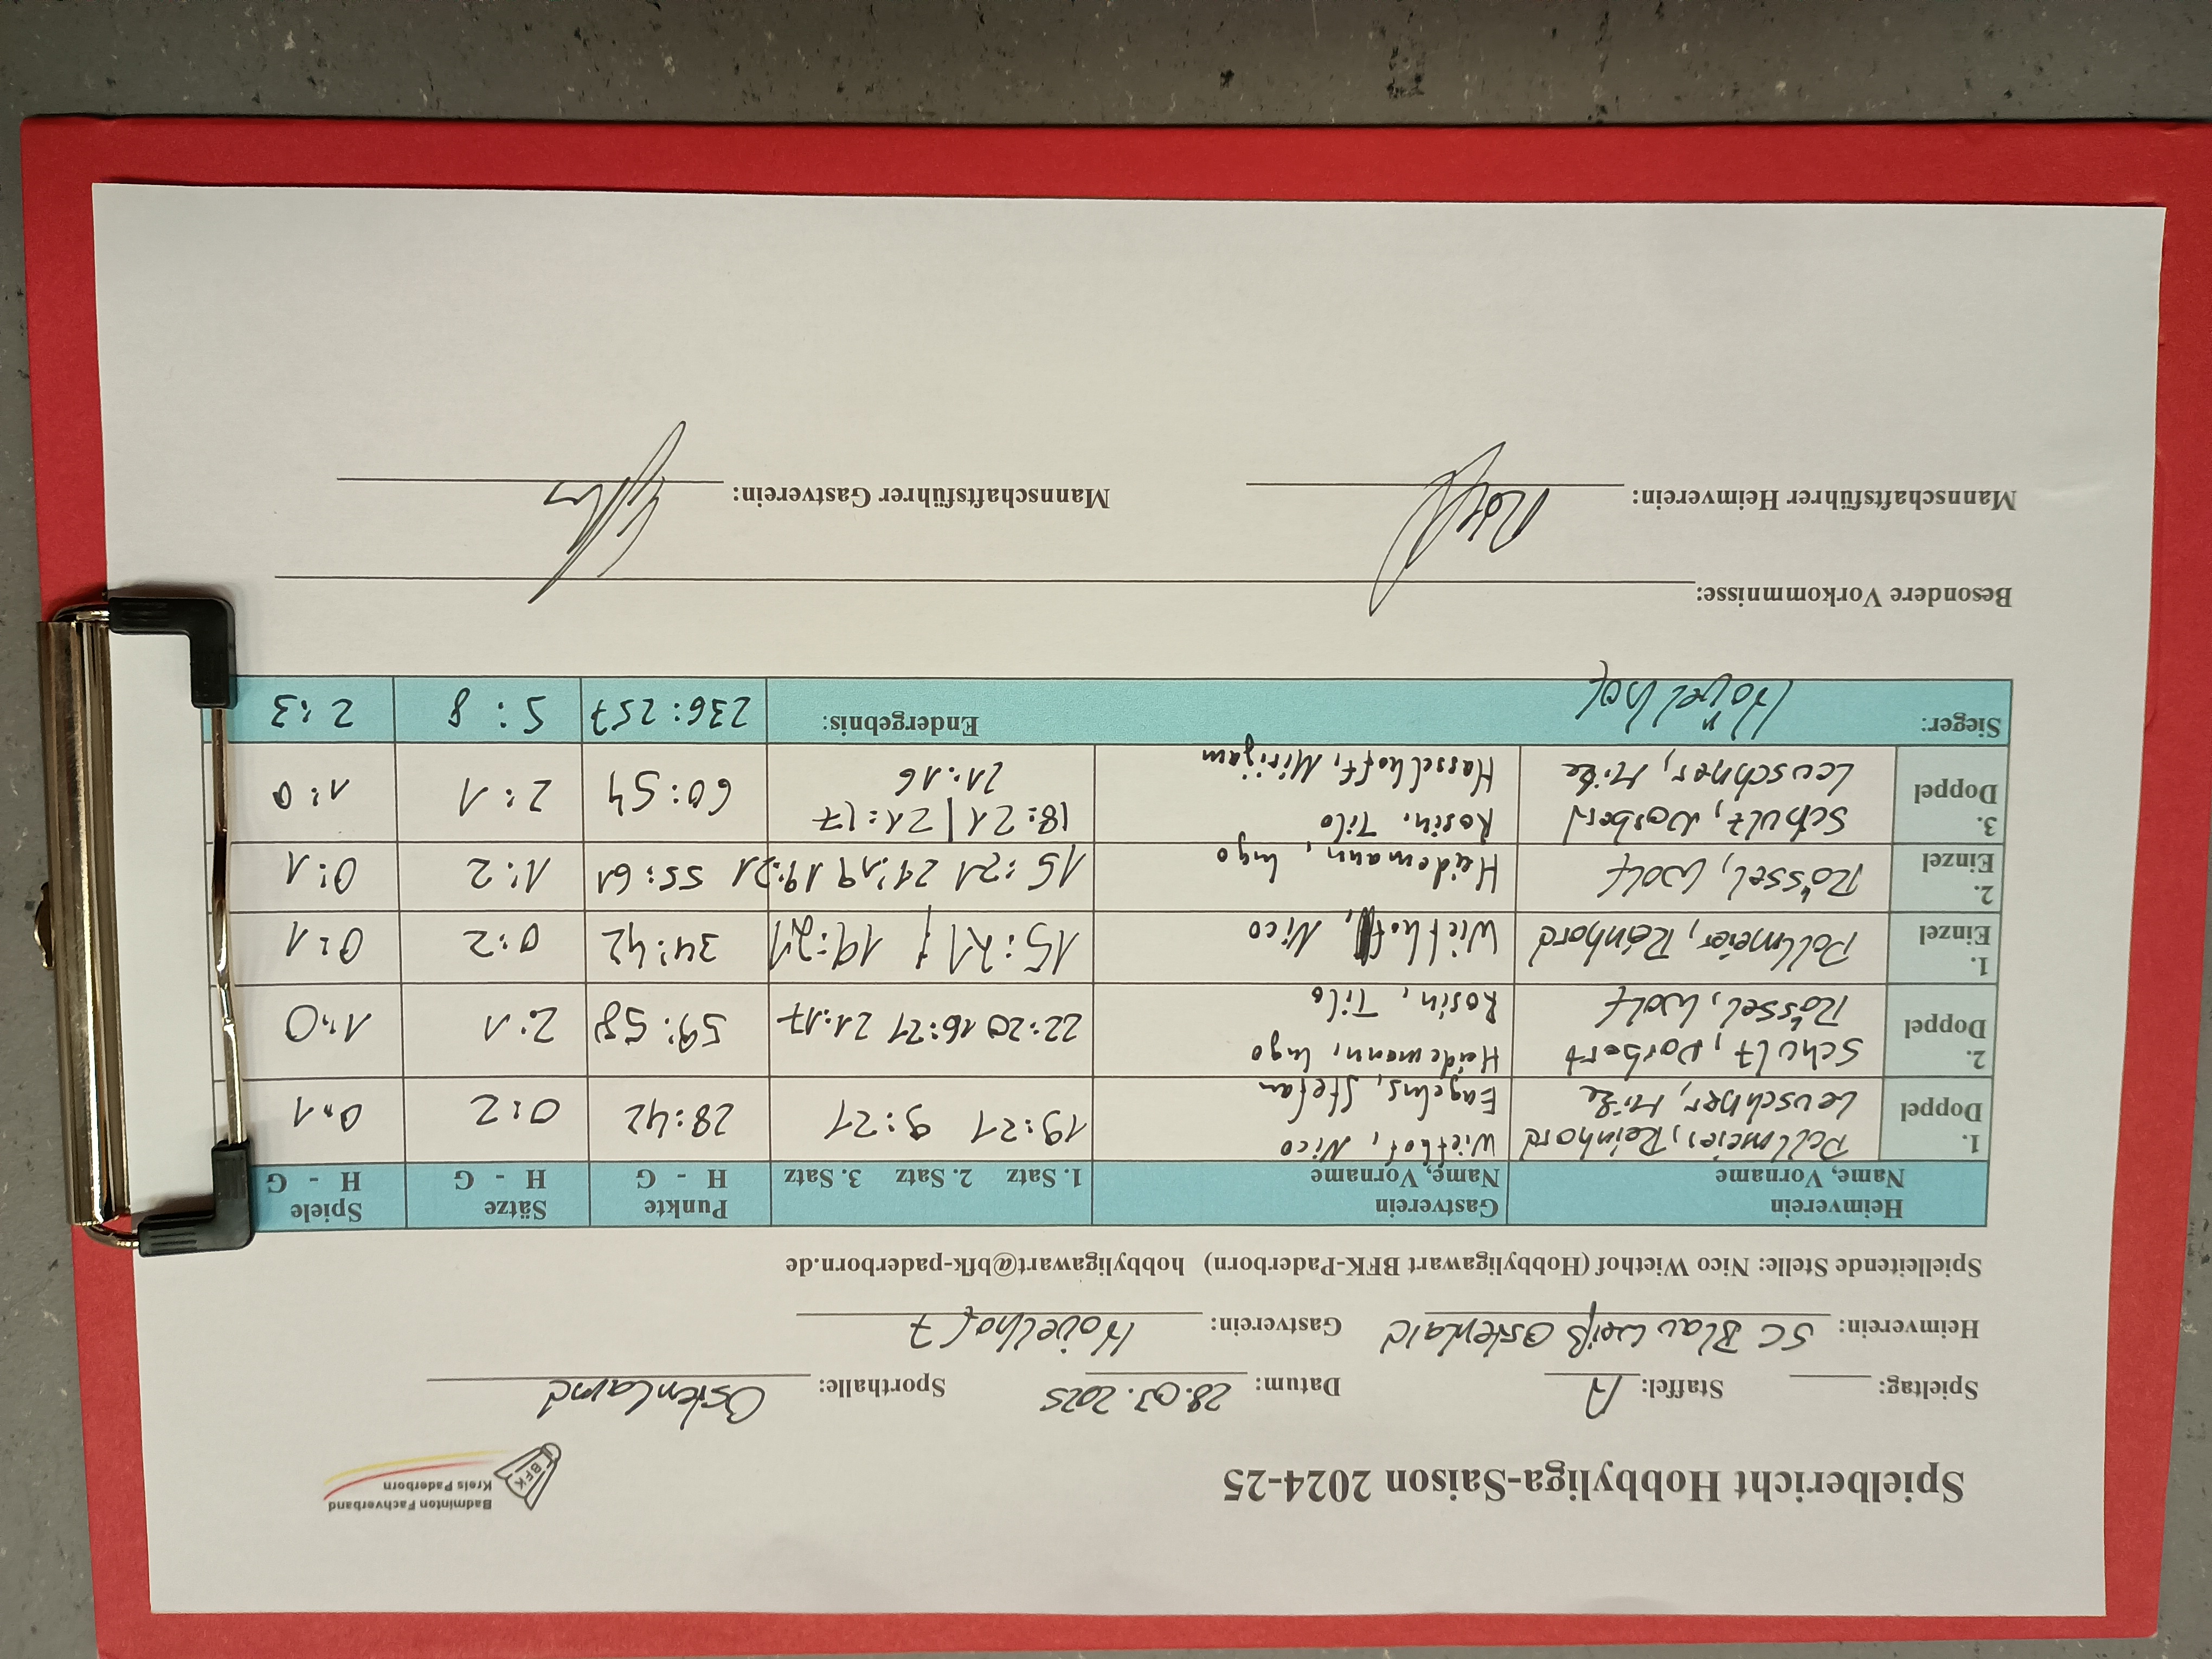 Spielbericht Hobbyliga-Saison 2024-25
Badminton Fachverband
Kreis Paderborn
BFK
Spieltag: Staffel: A Datum: 28.03.2025 Sporthalle: Ostenland
Heimverein: SC Blau Weiß Ostenland Gastverein: Hövelhof 7
Spielleitende Stelle: Nico Wiethof (Hobbyligawart BFK-Paderborn) hobbyligawart@bfk-paderborn.de
Heimverein Gastverein Punkte Sätze Spiele
Name, Vorname Name, Vorname 1. Satz 2. Satz 3. Satz H - G H - G H - G
1. Pollmeier, Reinhard Wiethof, Nico
Doppel Leuschner, Mike Eagelns, Stefan 19:21 9:21 28:42 0:2 0:1
2. Schulz, Norbert Heidemann, Ingo
Doppel Rössel, Wolf Rosin, Tilo 22:20 16:21 21:17 59:58 2:1 1:0
1.
Einzel Pollmeier, Reinhard Wiethof, Nico 15:21 19:21 34:42 0:2 0:1
2.
Einzel Rössel, Wolf Heidemann, Ingo 15:21 21:19 19:21 55:61 1:2 0:1
3. Schulz, Norbert Rosin, Tilo 18:21 | 21:17
Doppel Leuschner, Mike Hasselhoff, Mirijam 21:16 60:54 2:1 1:0
Sieger: Hövelhof Endergebnis: 236:257 5:8 2:3
Besondere Vorkommnisse:
Mannschaftsführer Heimverein: Mannschaftsführer Gastverein: